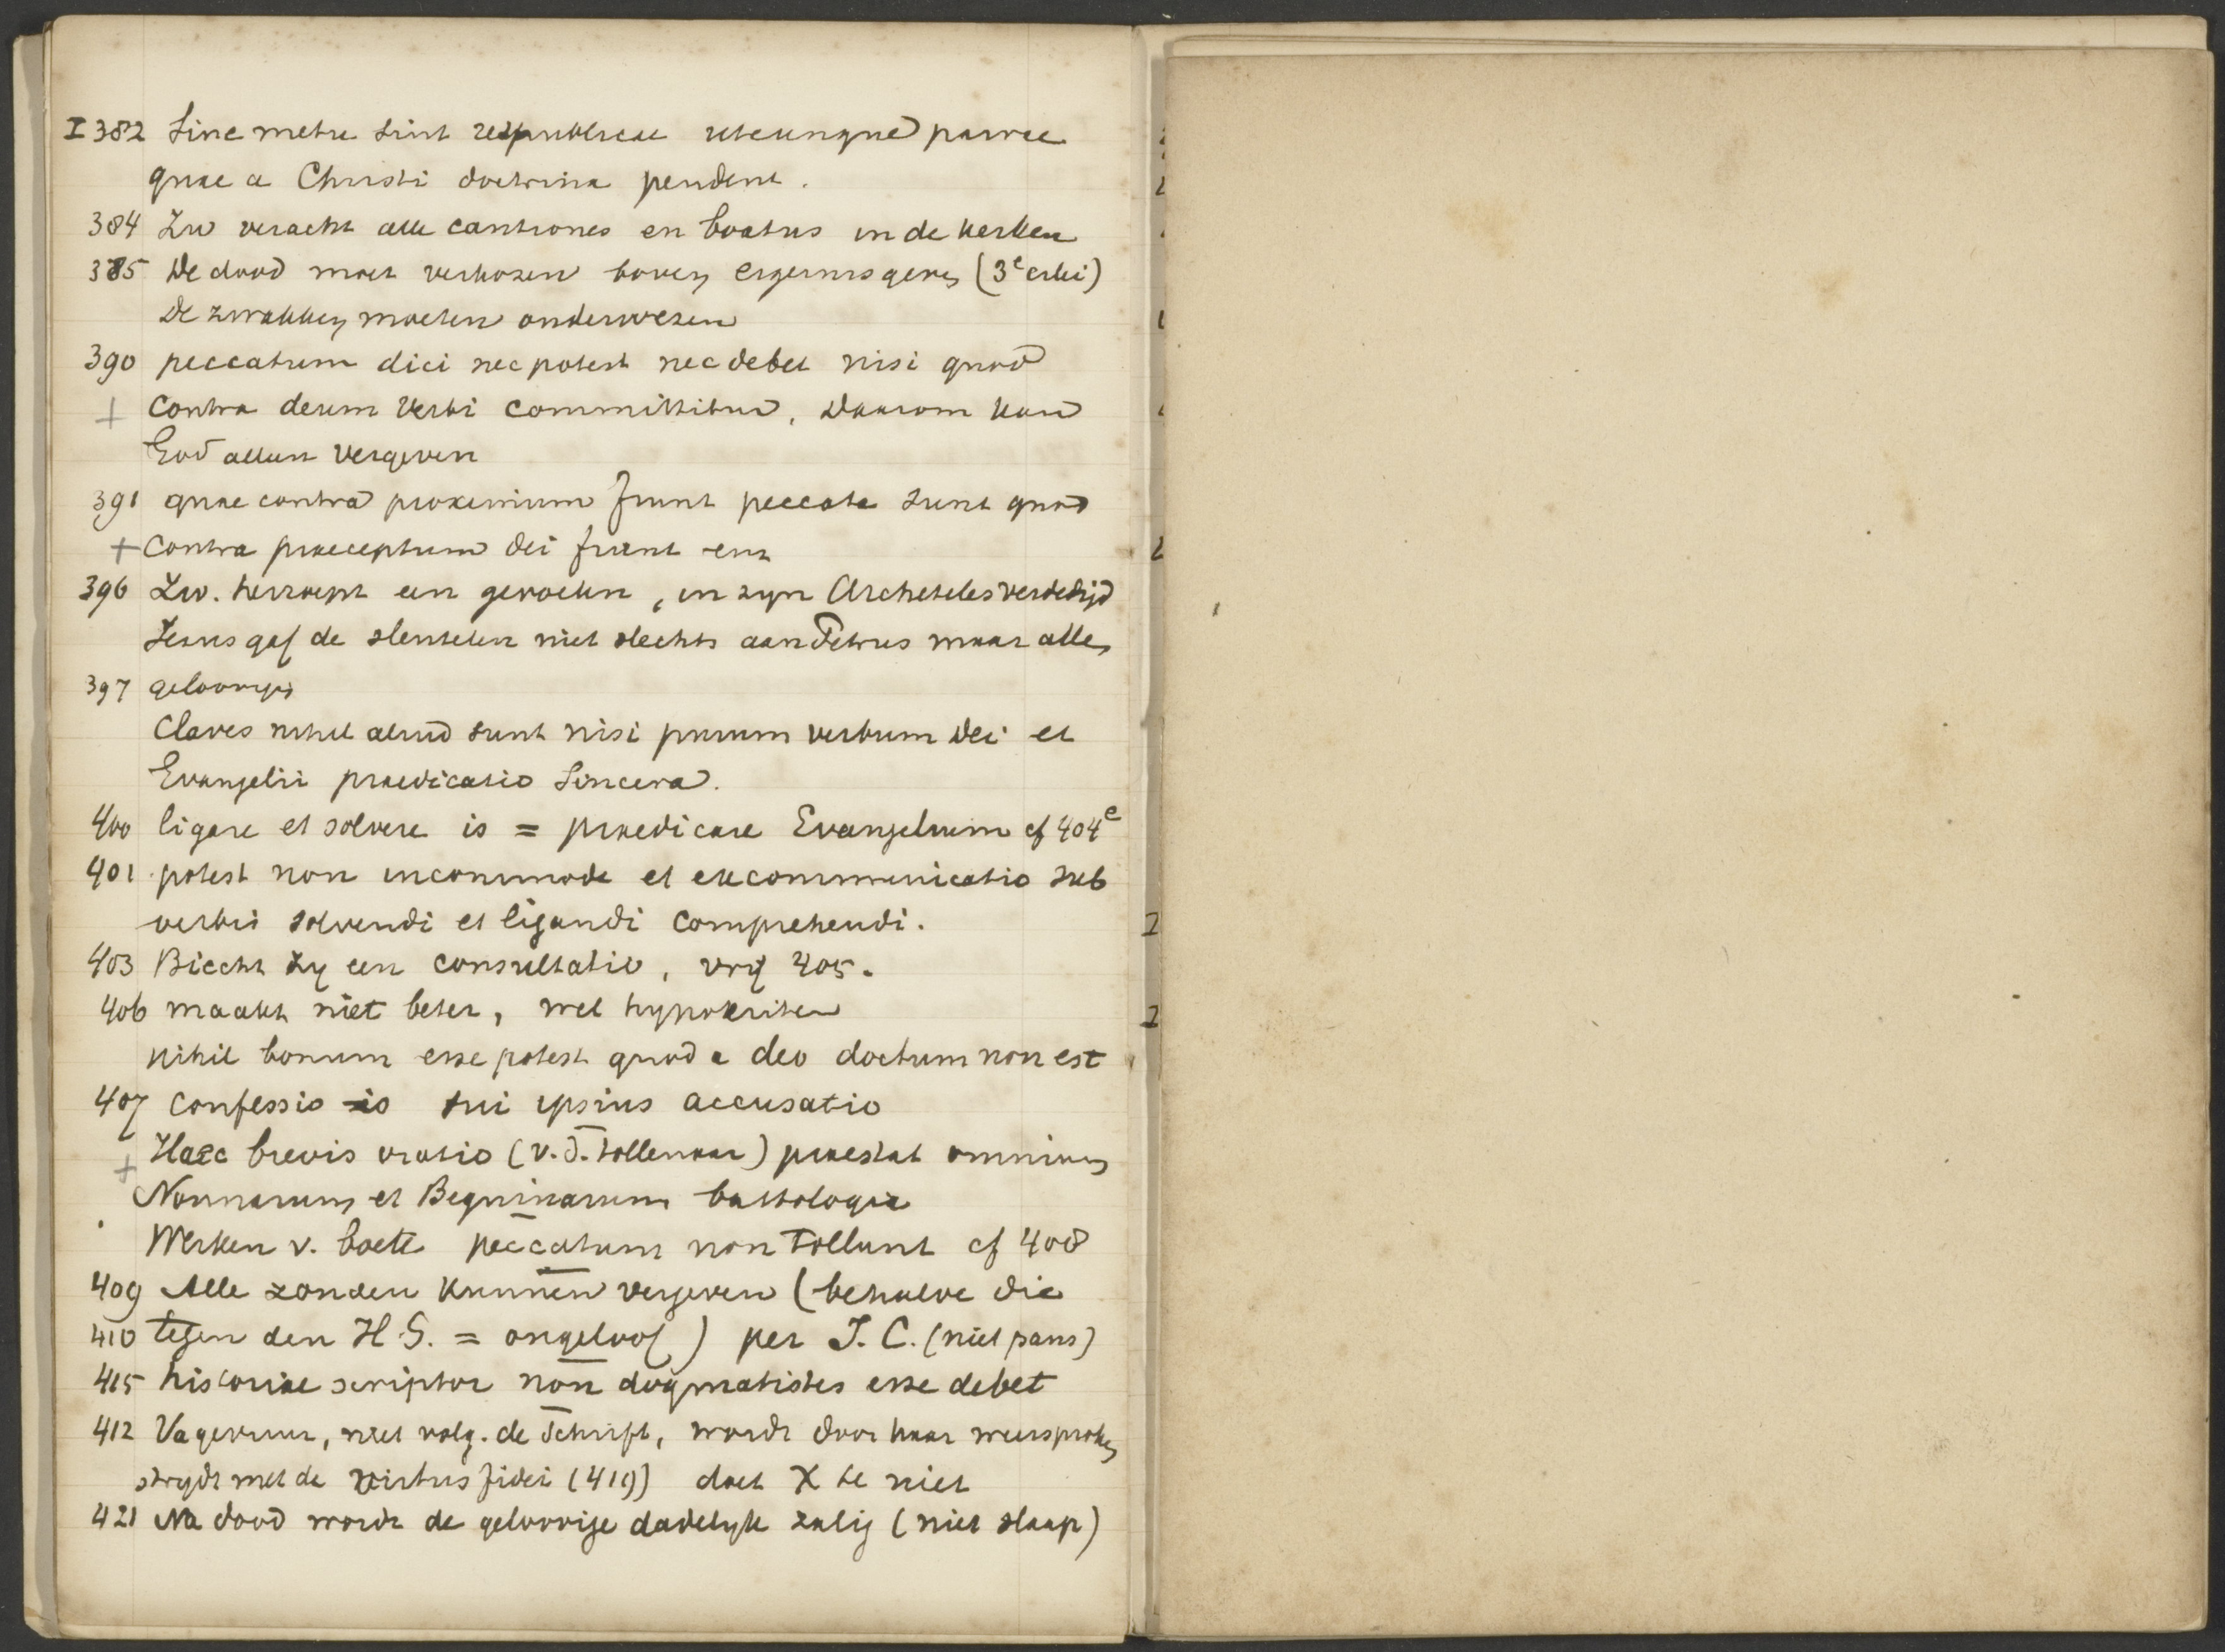 I 382 Sine metu sint respublicae utcunque parvae
quae a Christi doctrina pendent.
384 Zw veracht alle cantiones en boatus in de kerken
385 De dood moet verkozen boven ergernis geven (3e)
De zwakken moeten onderwezen
390 peccatum dici nec potest nec debet nisi quod
+ contra deum verbi committitur, daarom kan
God alleen vergeven
391 quae contra proximum fiunt peccata sunt quod
+ contra praeceptum dei fiunt enz
396 Zw. herroept een gevoelen, in zyn Archeteles verdedigd
Jesus gaf de sleutelen niet slechts aan Petrus maar alle
397 geloovigen
Claves nihil aliud sunt nisi purum verbum Dei et
Evangelii praedicatio sincera.
400 ligare et solvere is = praedicare Evangelium cf 404e
401 potest non incommode et excommunicatio sub
verbis solvendi et ligandi comprehendi.
403 Biecht zy een consultatio, vrij 405.
406 maakt niet beter, wel hypokriten
nihil bonum esse potest quod a deo doctum non est
407 Confessio is sui ipsius accusatio
+ Haec brevis oratio (v. d. tollenaar) praestat omnium
Nonnarum et Beguinarum battologia
Werken v. boete peccatum non tollunt cf 408
409 Alle zonden kunnen vergeven (behalve die
410 tegen den H. G. = ongeloof) per J. C. (niet paus)
415 historiae scriptor non dogmatistes esse debet
412 Vagevuur, niet volg. de Schrift, wordt door haar weersproken
strydt met de virtus fidei (419) doet X te niet
421 Na dood wordt de geloovige dadelyk zalig (niet slaap)